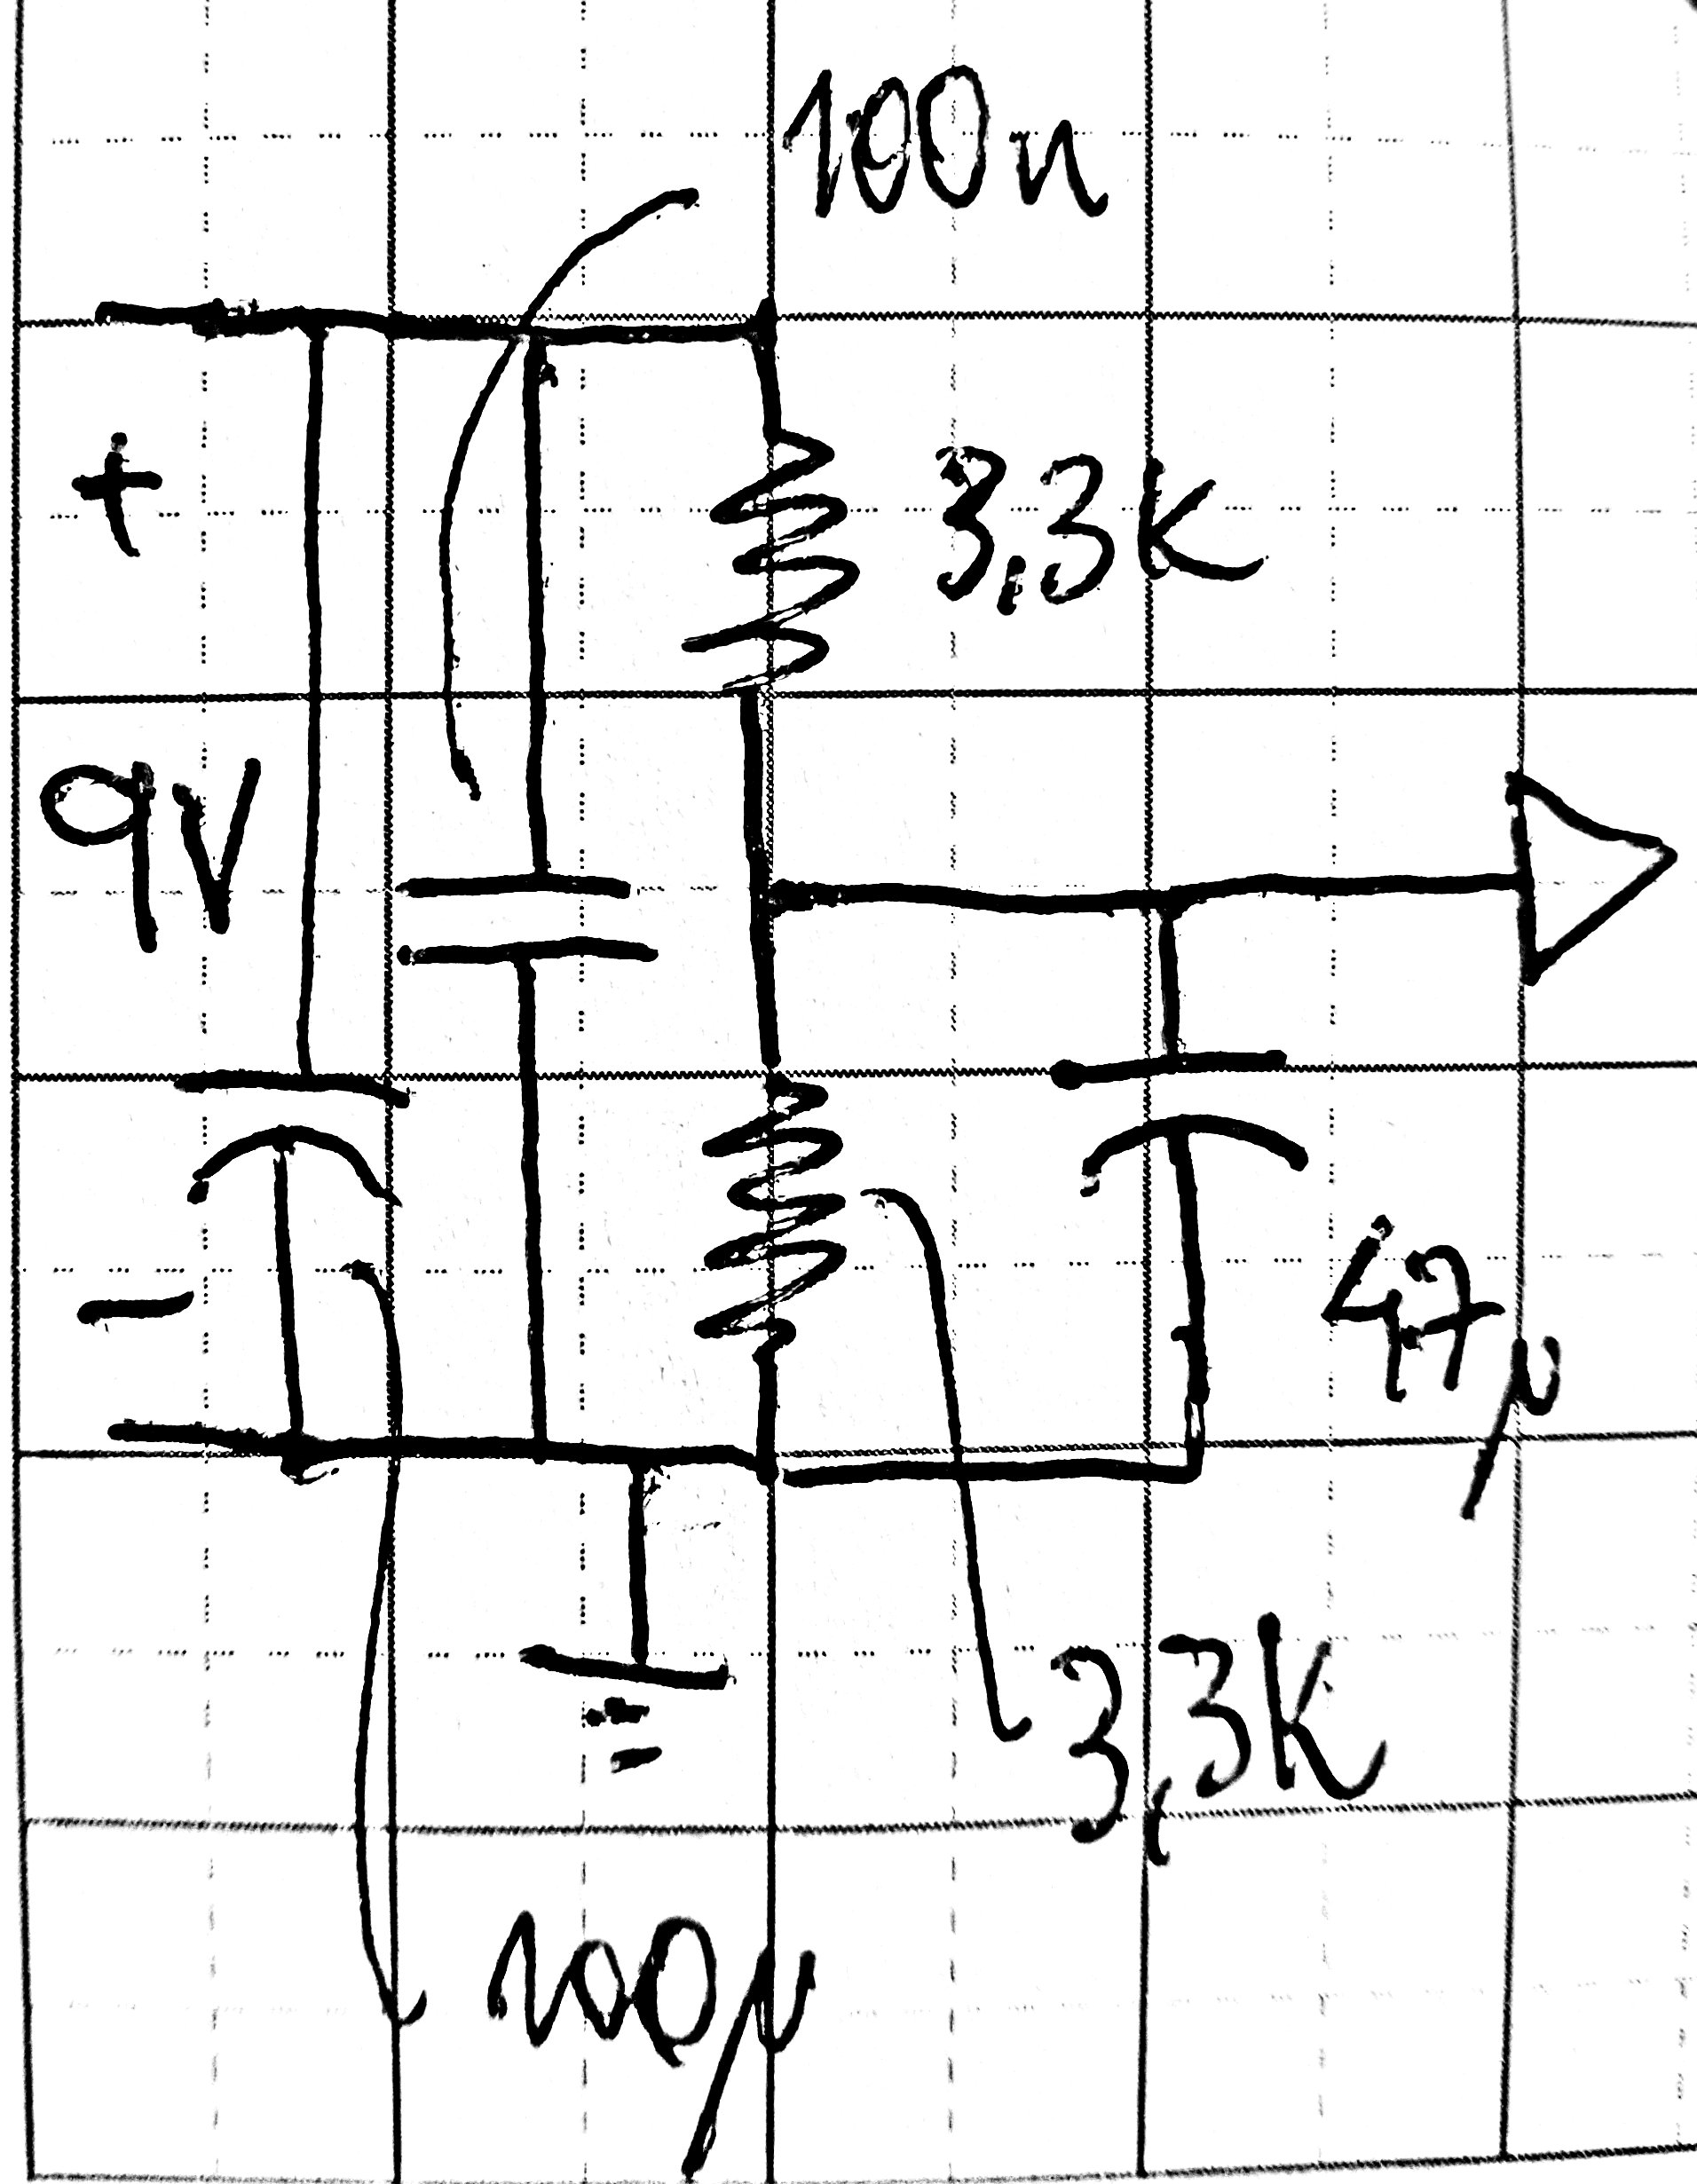 100n
+
3,3K
9V
-
4,7µ
3,3K
100µ